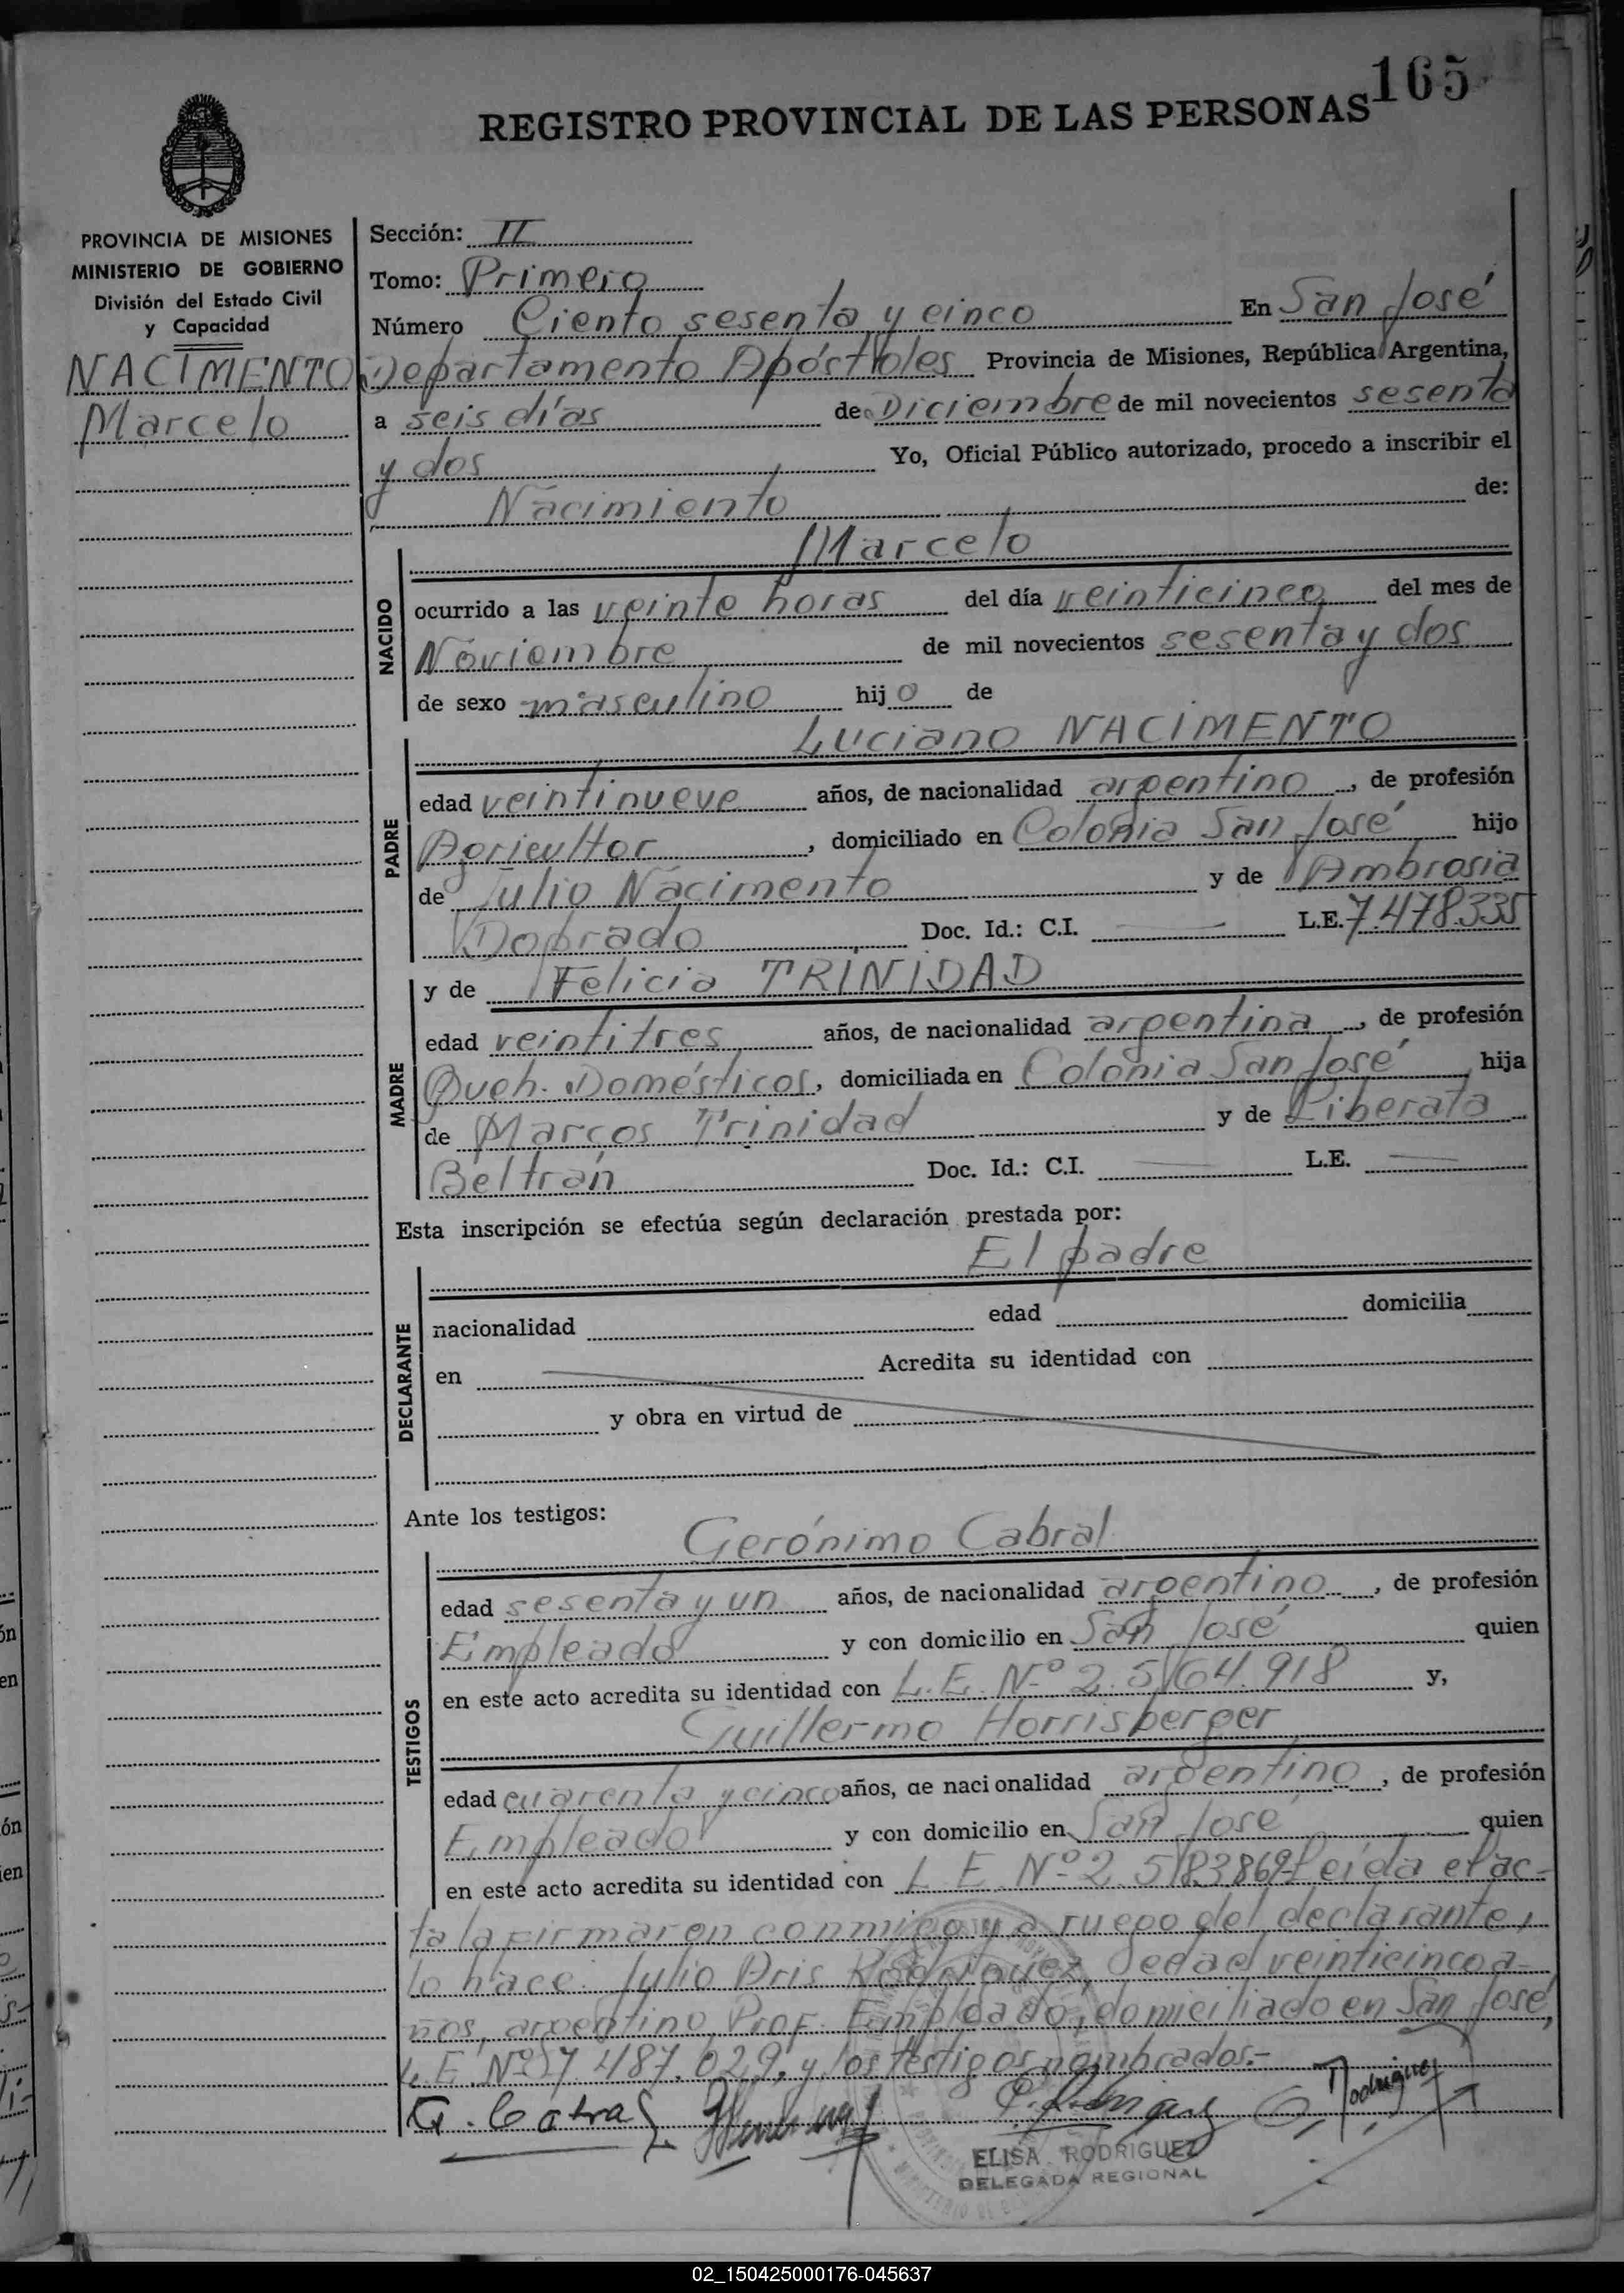 165
REGISTRO PROVINCIAL DE LAS PERSONAS
PROVINCIA DE MISIONES
MINISTERIO DE GOBIERNO
División del Estado Civil
y Capacidad
NACIMENTO
Marcelo
Sección: II
Tomo: Primero
Número Ciento sesenta y cinco En San José
Departamento Apóstoles Provincia de Misiones, República Argentina,
a seis días de Diciembre de mil novecientos sesenta
y dos Yo, Oficial Público autorizado, procedo a inscribir el
Nacimiento de:
Marcelo
NACIDO
ocurrido a las veinte horas del día veinticinco del mes de
Noviembre de mil novecientos sesenta y dos
de sexo masculino hijo de
Luciano NACIMENTO
PADRE
edad veintinueve años, de nacionalidad argentino, de profesión
Agricultor, domiciliado en Colonia San José hijo
de Julio Nacimento y de Ambrosia
Doprado Doc. Id.: C.I. L.E. 7.478.335
y de Felicia TRINIDAD
MADRE
edad veintitres años, de nacionalidad argentina, de profesión
Queh. Domésticos, domiciliada en Colonia San José hija
de Marcos Trinidad y de Liberata
Beltrán Doc. Id.: C.I. L.E.
Esta inscripción se efectúa según declaración prestada por:
El padre
DECLARANTE
nacionalidad edad domicilia
en Acredita su identidad con
y obra en virtud de
Ante los testigos:
Gerónimo Cabral
TESTIGOS
edad sesenta y un años, de nacionalidad argentino, de profesión
Empleado y con domicilio en San José quien
en este acto acredita su identidad con L.E. Nº 2.564.918 y,
Guillermo Horrisberger
edad cuarenta y cinco años, de nacionalidad argentino, de profesión
Empleado y con domicilio en San José quien
en este acto acredita su identidad con L E Nº 2.583869 Leida el ac-
ta la firmaron conmigo y a ruego del declarante,
lo hace: Julio Rodriguez, de edad veinticinco a-
ños, argentino, Prof. Empleado, domiciliado en San José,
L.E. Nº 7.487.029, y los testigos nombrados.-
G. Cabral
Rodriguez
ELISA RODRIGUEZ
DELEGADA REGIONAL
02_150425000176-045637